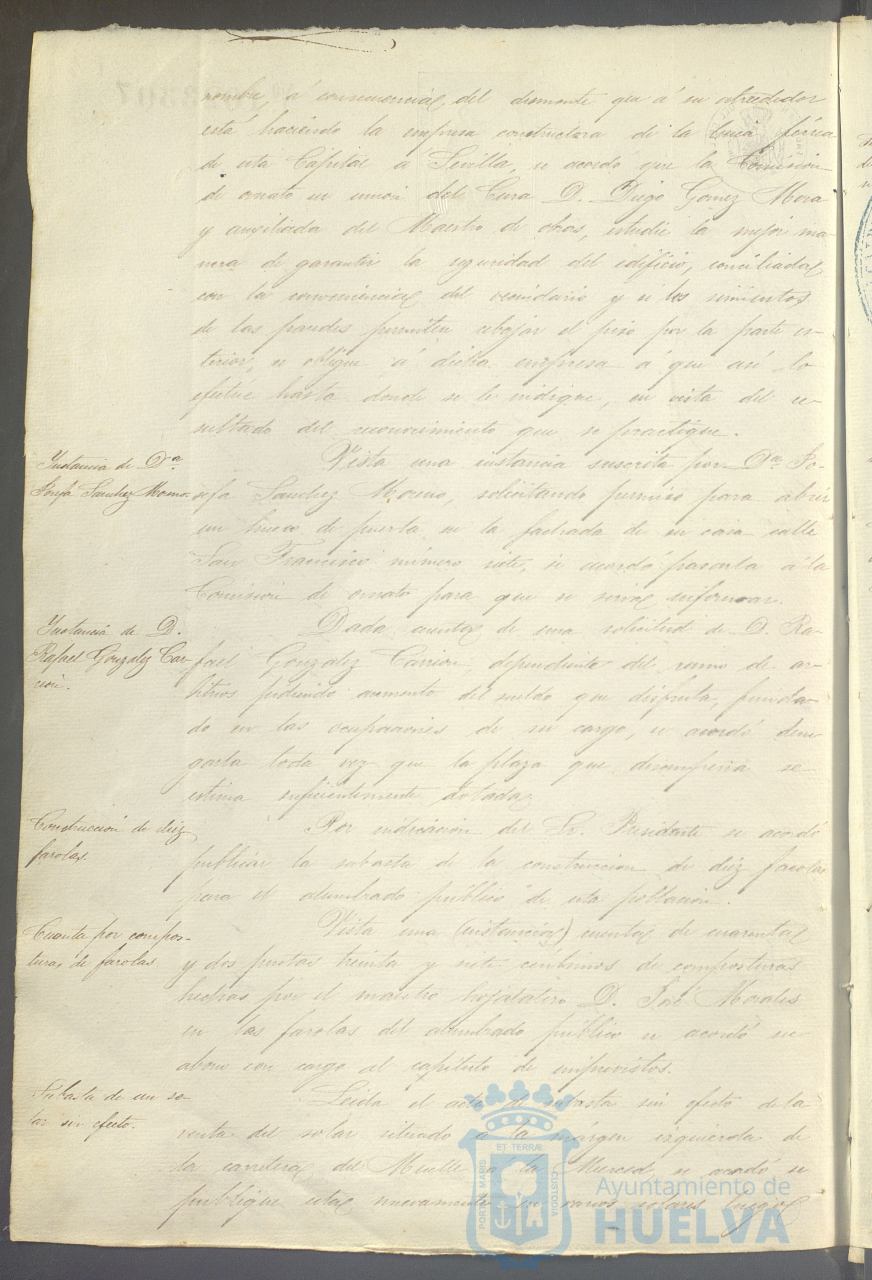 nombre, á consecuencia del desmonte que á su alrededor
está haciendo la empresa constructora de la linea férrea
de esta Capital á Sevilla, se acordó que la Comisión
de ornato en union del Cura D. Diego Gomez Mora
y auxiliada del Maestro de obras, estudie la mejor ma-
nera de garantir la seguridad del edificio, conciliada
con la conveniencia del vecindario y si los cimientos
de las paredes permiten rebajar el piso por la parte es-
terior, se obligue á dicha empresa á que asi lo
efectue hasta donde se le indique, en vista del re-
sultado del reconocimiento que se practique.
Instancia de Dª
Josefa Sanchez Moreno.
Vista una instancia suscrita por Dª Jo-
sefa Sanchez Moreno, solicitando permiso para abrir
un hueco de puerta en la fachada de su casa calle
San Francisco número siete, se acordó pasarla á la
Comisión de ornato para que se sirva informar.
Instancia de D.
Rafael Gonzalez Car-
rion.
Dada cuenta de una solicitud de D. Ra-
fael Gonzalez Carrion, dependiente del ramo de ar-
bitrios pidiendo aumento del sueldo que disfruta, funda-
do en las ocupaciones de su cargo, se acordó dene-
garla toda vez que la plaza que desempeña se
estima suficientemente dotada.
Construcción de diez
farolas.
Por indicación del Sr. Presidente se acordó
publicar la subasta de la construccion de diez farolas
para el alumbrado público de esta población.
Cuenta por compos-
turas de farolas
Vista una (instancia) cuenta de cuarenta
y dos pesetas treinta y siete céntimos de composturas
hechas por el maestro hojalatero D. José Morales
en las farolas del alumbrado público se acordó su
abono con cargo al capítulo de imprevistos.
Subasta de un so-
lar sin efecto.
Leida el acta de subasta sin efecto de la
venta del solar situado á la márgen izquierda de
la carretera del Muelle á la Merced, se acordó se
publique esta nuevamente en varios solares
PORTUS MARIS
ET TERRÆ
CUSTODIA
Ayuntamiento de
HUELVA